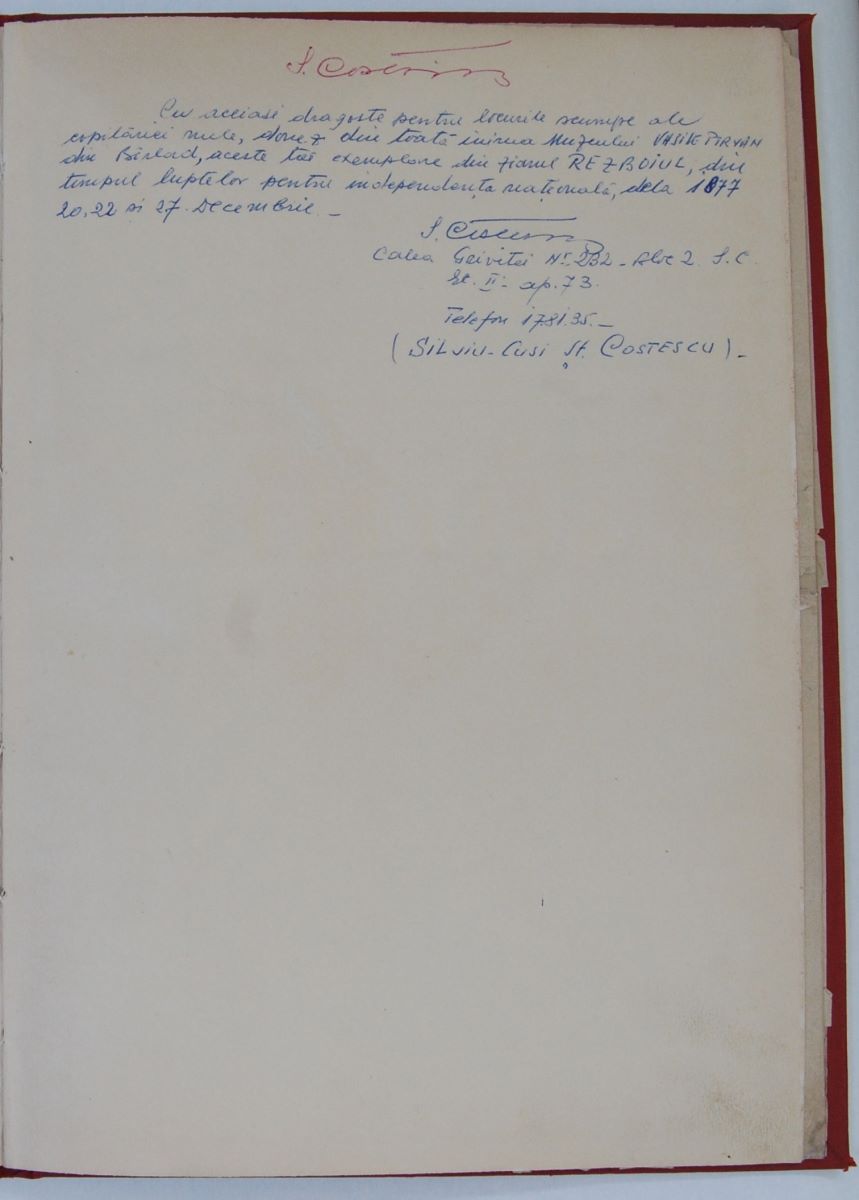 S. Costescu
Cu aceiasi dragoste pentru locurile scumpe ale
copilăriei mele, donez din toată inima Muzeului VASILE PÎRVAN
din Bârlad, aceste trei exemplare din ziarul REZBOIUL, din
timpul luptelor pentru independența națională, dela 1877
20, 22 și 27. Decembrie. _
S. Costescu
Calea Griviței Nr. 232 - Bloc 2. S. C.
Et. II - ap. 73.
Telefon 178135. _
( SILVIU - Cuși Șt. COSTESCU ) _